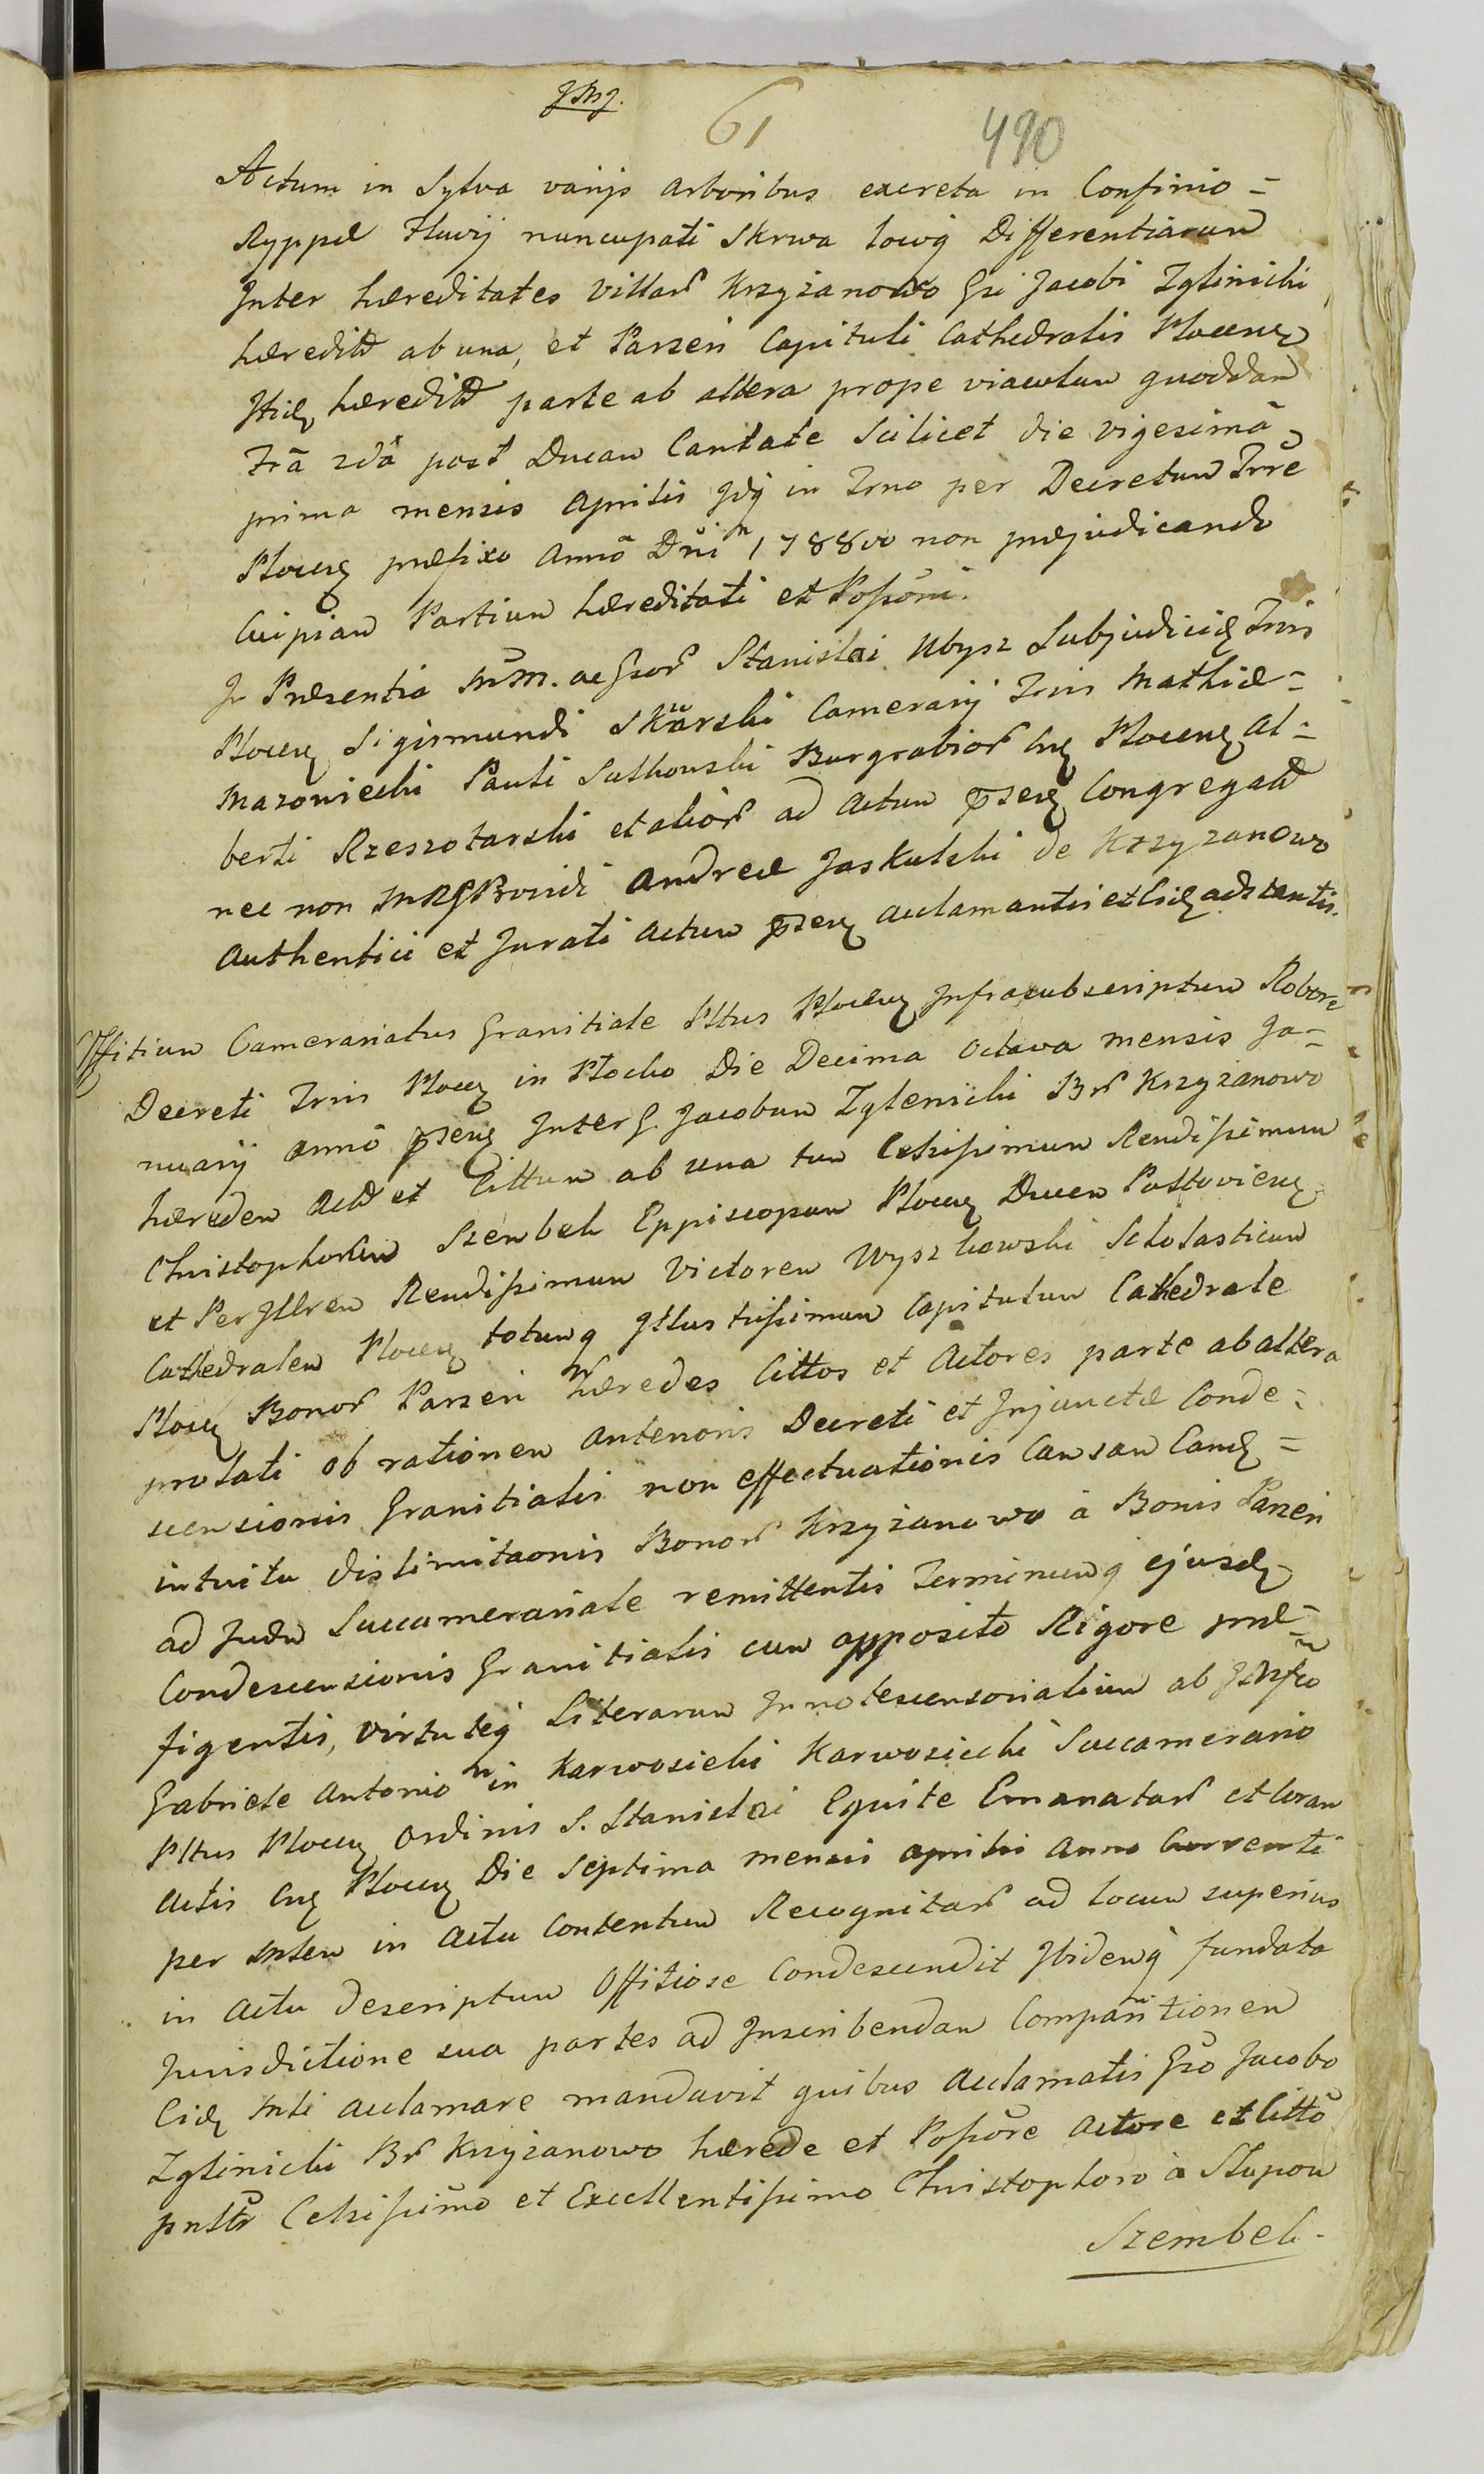 61
490
Actum in Sylva varijs arboribus excreta in Confinio =
Ryppæ Fluvij nuncupati Skrwa locoq Differentiarum
Inter hæreditates Villar Krzyżanowo Gsi Jacobi Zglinicki
hæredit ab una, et Parzen Capituli Cathedralis Plocen
Itid hæredit parte ab altera prope viaculum quoddam
Frã 2dâ post Ducam Cantate Scilicet die vigesimâ
prima mensis Aprilis Idq in Trno per Decretum Trrẽ
Plocen præfixo Annõ Dñi 1788vo non præjudicando
Cuipiam Partium hæreditati et Possõni.
In Præsentia MM. ac Gsor Stanislai Ubysz Subjudicis Trris
Plocen Sigismundi Skarski Camerarij Trris Mathiæ =
Mazowiecki Pauli Sutkowski Burgrabior Cns Plocen Al =
berti Rzeszotarski et alior ad Actum præsen Congregat
nec non MRG Providi Andreæ Jaskulski de Krzyzanowo
Authentici et Jurati Actum præsen acclamantis et Lid adstantis.
Offitium Camerariatus Granitiale Pltus Plocen Infrasubscriptum Robore
Decreti Trris Plocen in Plocko Die Decima Octava mensis Ja =
nuarij annõ præsen Inter G. Jacobum Zglenicki Br Krzyzanowo
hæredem Act et Cittum ab una tum Celsissimum Rendissimum
Christophorum Szembek Eppiscopum Plocen Ducem Pultovien
et Per Illrem Rendissimum Victorem Wyszkowski Scholasticum
Cathedralem Plocen totumq Illustrissimum Capitulum Cathedrale
Plocen Bonor Parzen hæredes Cittos et Actores parte ab altera
prolati ob rationem anterioris Decreti et Injunctæ Conde =
scensionis Granitialis non effectuationis Causam Eand =
intuitu distimitaonis Bonor Krzyzanowo à Bonis Parzen
ad Judm Succamerariale remittentis Terminumq ejusd
Condescensionis Granitialis cum apposito Rigore præ =
figentis, virtuteq Literarum Innotescensorialium ab Illfco
Gabriele Antonio in Karwosieki Karwosiecki Succamerario
Pltus Plocen Ordinis S. Stanislai Equite Emanatar et Coram
Actis Cns Plocen Die Septima mensis aprilis anno Currenti
per Mtem in Actu Contentum Recognitar ad locum superius
in Actu descriptum Offitiose Condescendit Ibidemq fundata
Jurisdictione sua partes ad Inscribendam Comparitionem
Lid Mti acclamare mandavit quibus acclamatis Gso Jacobo
Zglinicki Br Krzyżanowo hærede et Possõre Actore et Cittõ
pnltr Celsissimo et Excellentissimo Christophoro à Slupow
Szembek.